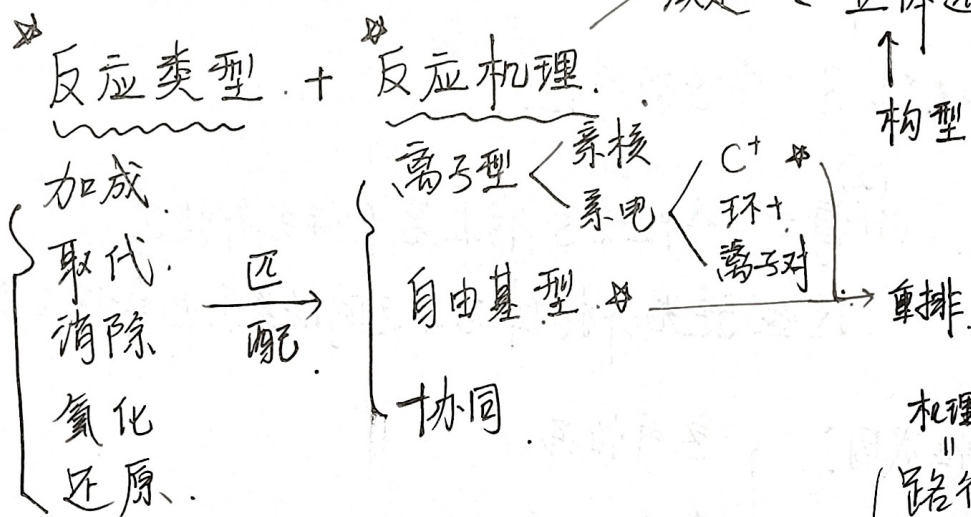 立体
☆ 反应类型 + ☆ 反应机理.
↑
构型
加成.
取代.
消除
氧化
还原.
匹配.
离子型 < 亲核
亲电 < C⁺ ☆
环+
离子对
自由基型 ☆ → 重排.
协同.
机理
=
路